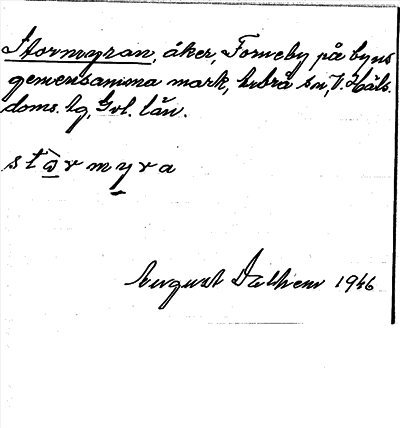 Stormyran, åker, Forneby på byns
gemensamma mark, Arbrå sn, V. Häls.
doms. tg, Gvl. län.
stòrmyra
August Dalhem 1946